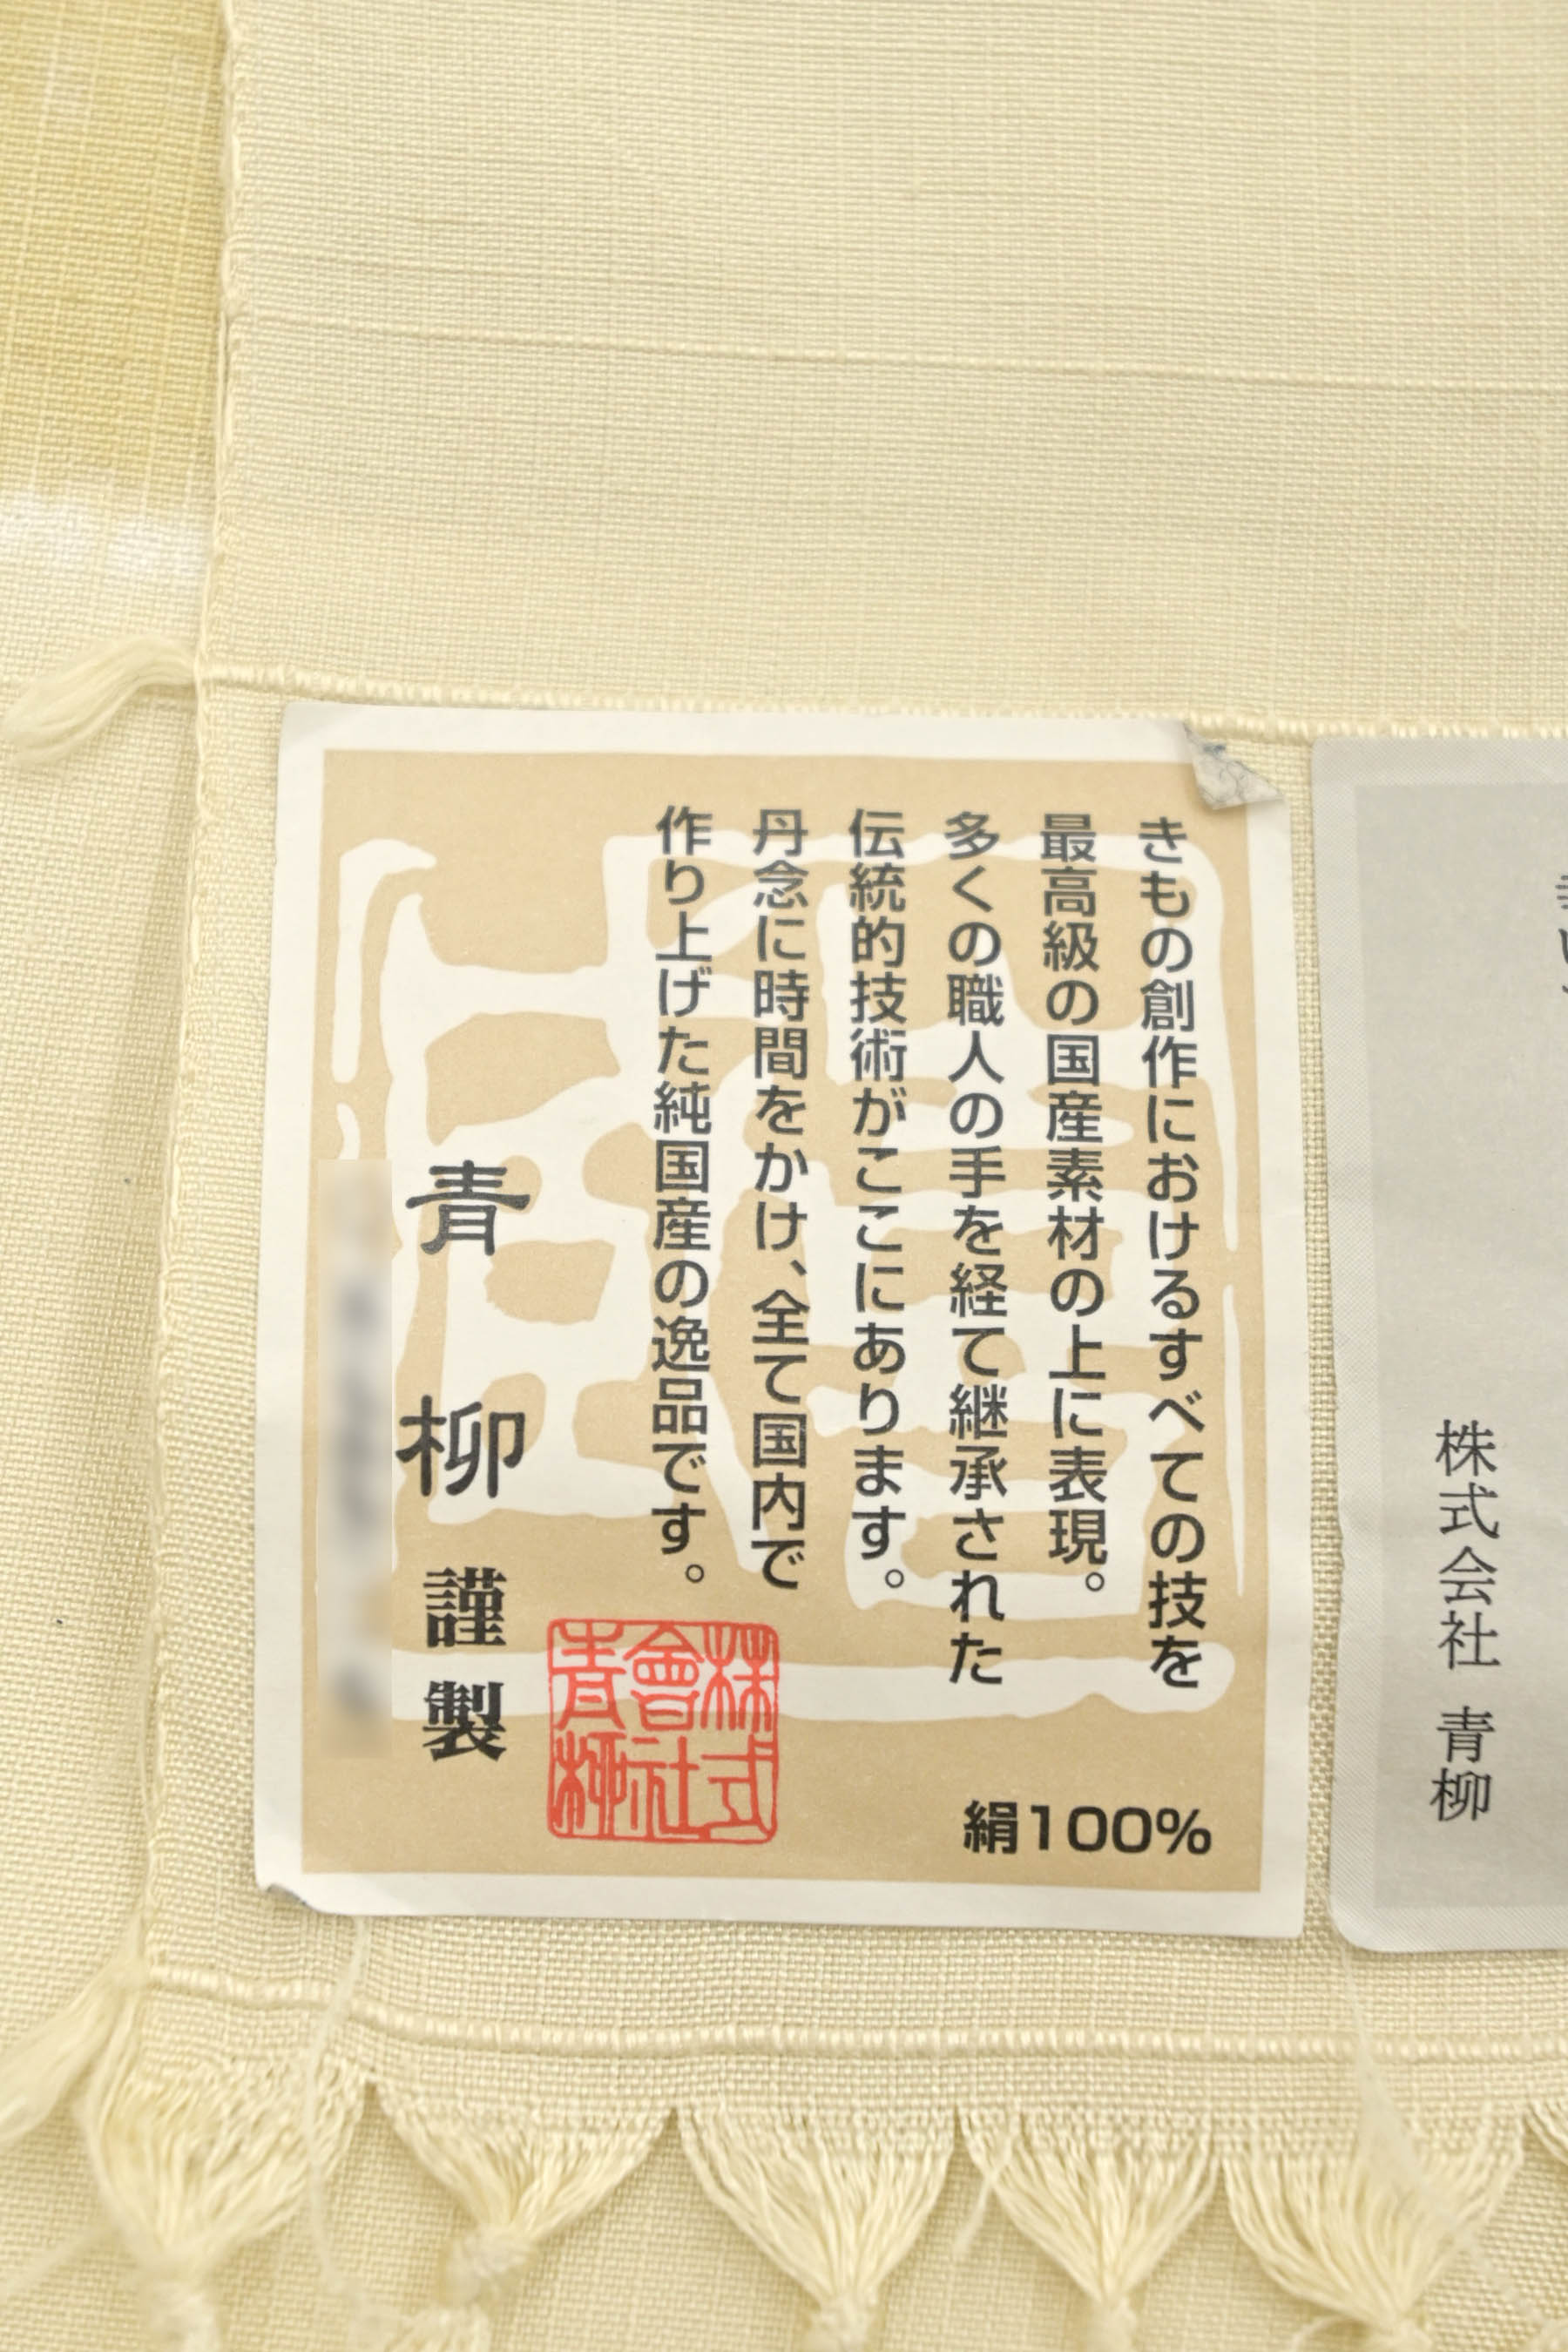 きもの創作におけるすべての技を
最高級の国産素材の上に表現。
多くの職人の手を経て継承された
伝統的技術がここにあります。
丹念に時間をかけ、全て国内で
作り上げた純国産の逸品です。
絹100%
株式
會社
青柳
青柳 謹製
株式会社 青柳